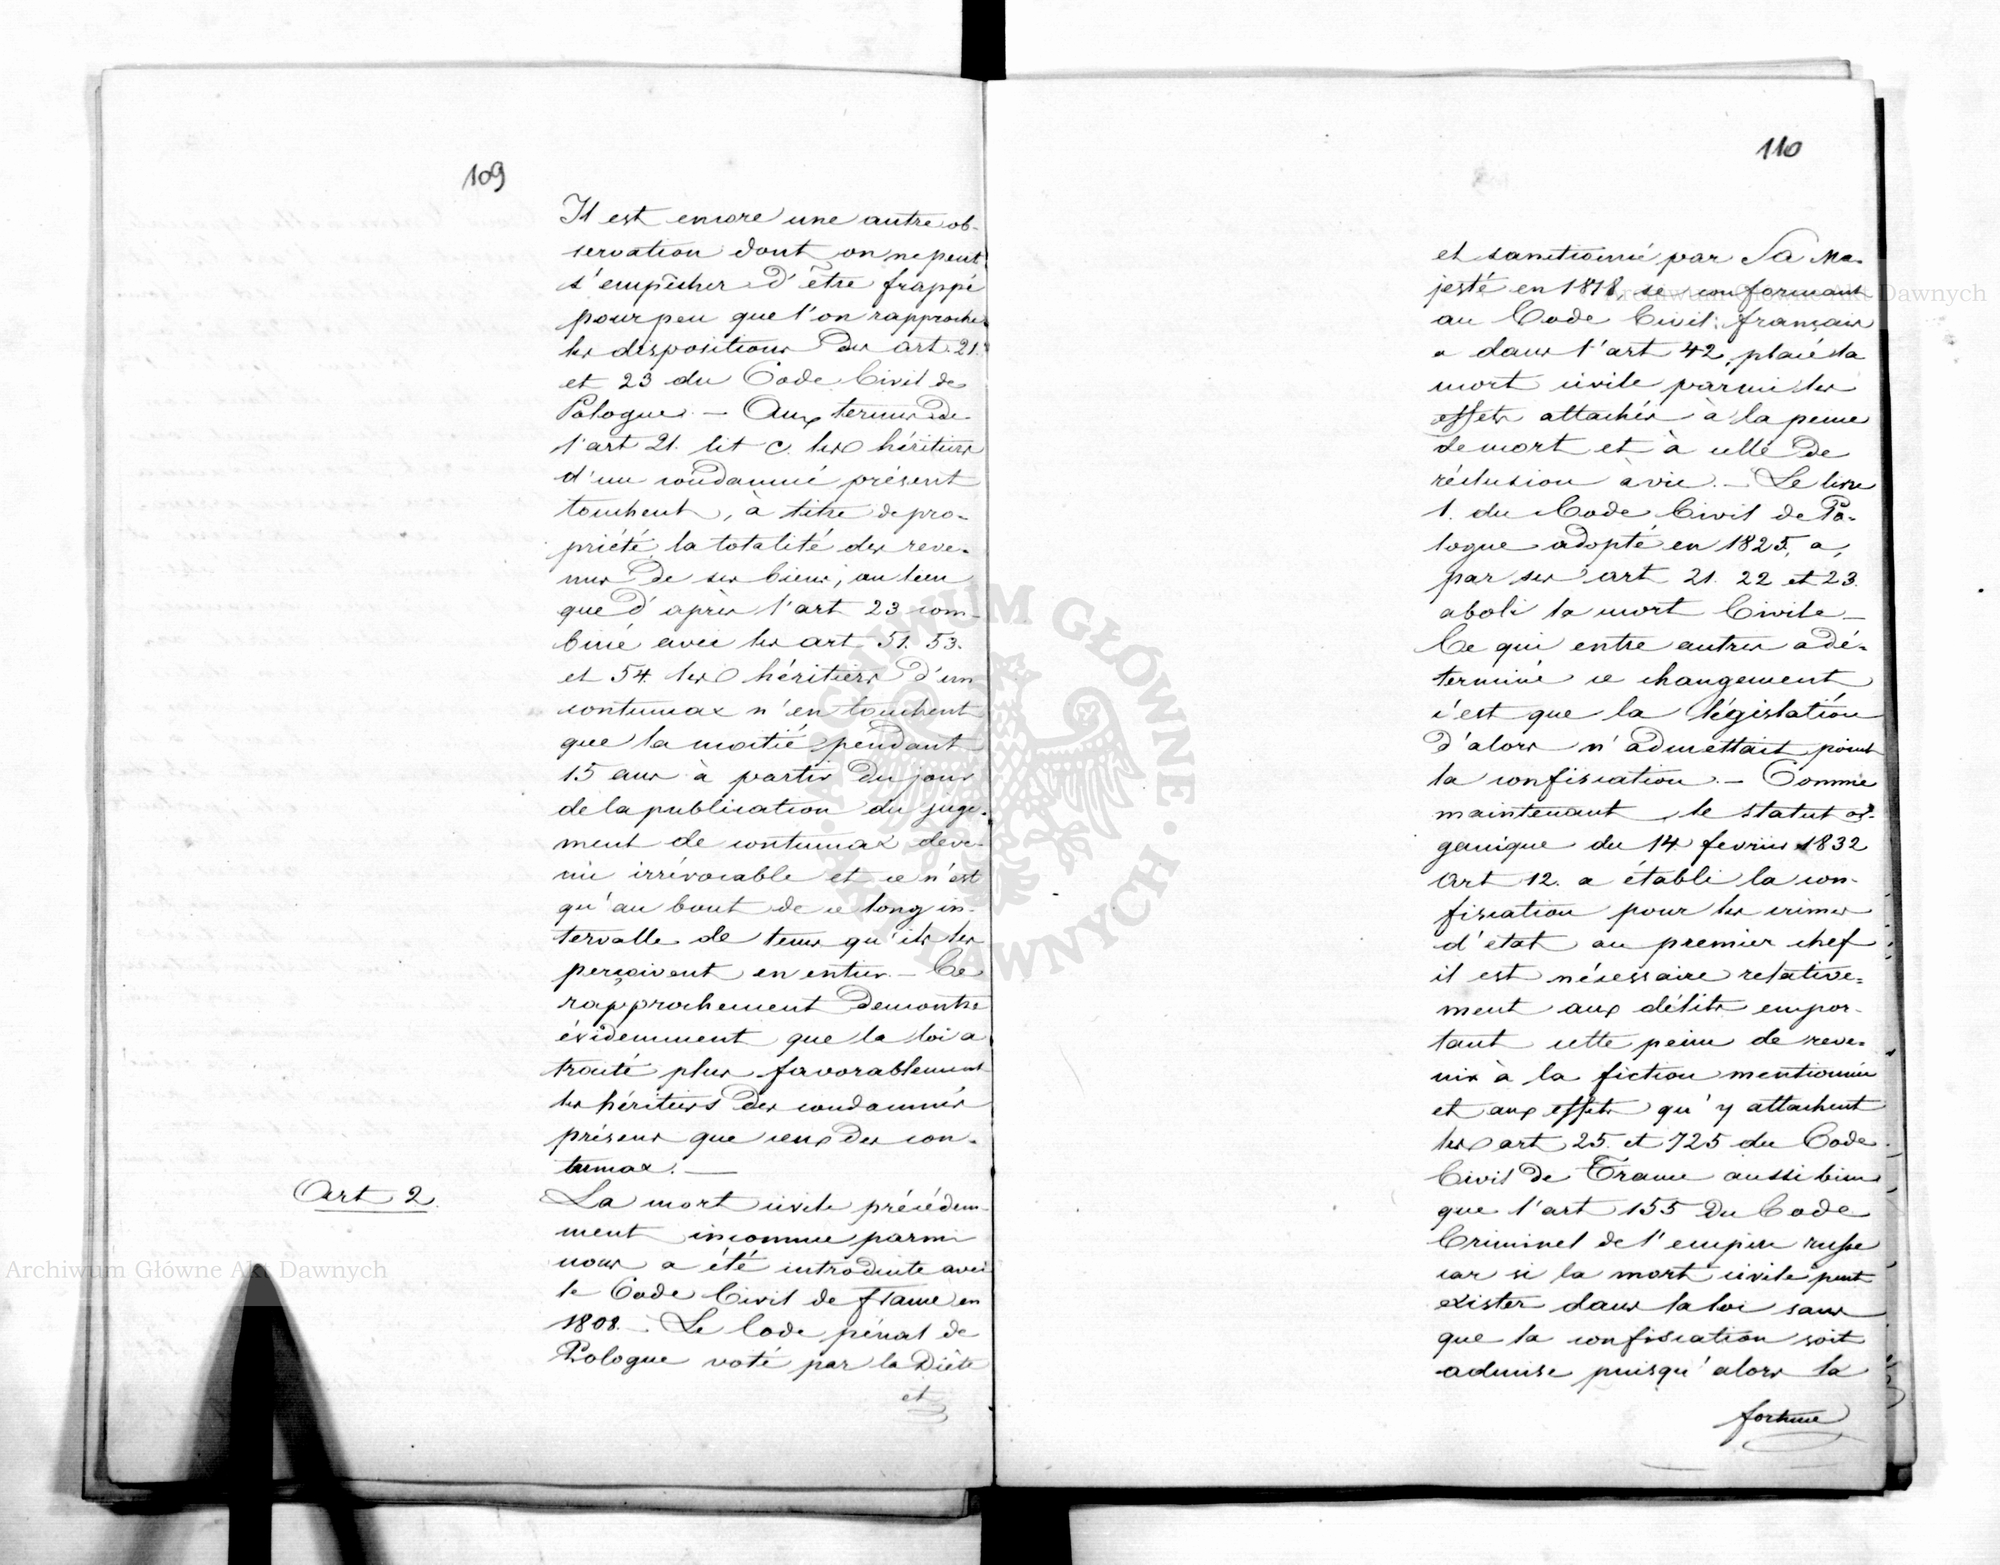 109
Il est encore une autre ob-
servation dont on ne peut
s'empêcher d'être frappé
pour peu que l'on rapproche
les dispositions des art. 21.
et 23 du Code Civil de
Pologne. — Aux termes de
l'art 21. lit c. les héritiers
d'un condamné présent
touchent, à titre de pro-
priété, la totalité des reve-
nus de ses biens, au lieu
que d'après l'art 23 com-
biné avec les art 51. 53.
et 54. les héritiers d'un
contumax n'en touchent
que la moitié pendant
15 ans à partir du jour
de la publication du juge-
ment de contumax deve-
nu irrévocable et ce n'est
qu'au bout de ce long in-
tervalle de tems qu'ils les
perçoivent en entier. — Ce
rapprochement démontre
évidemment que la loi a
traité plus favorablement
les héritiers des condamnés
présens que ceux des con-
tumax. —
Art 2.
La mort civile précédem-
ment inconnue parmi
nous a été introduite avec
le Code Civil de france en
1808. — Le Code pénal de
Pologne voté par la Diète
et
110
et sanctionné par Sa Ma-
jesté en 1818, se conformant
au Code Civil français
a dans l'art 42, placé la
mort civile parmi les
effets attachés à la peine
de mort et à celle de
réclusion à vie. — Le livre
1. du Code Civil de Po-
logne adopté en 1825, a,
par ses art 21. 22 et 23.
aboli la mort Civile —
Ce qui entre autres a dé-
terminé ce changement
c'est que la législation
d'alors n'admettait point
la confiscation. — Comme
maintenant le statut or-
ganique du 14 fevrier 1832
Art 12. a établi la con-
fiscation pour les crimes
d'état au premier chef
il est nécessaire relative-
ment aux délits empor-
tant cette peine de reve-
nir à la fiction mentionnée
et aux effets qu'y attachent
les art 25. et 725 du Code
Civil de France aussi bien
que l'art 155 du Code
Criminel de l'empire russe
car si la mort civile peut
exister dans la loi sans
que la confiscation soit
admise puisqu'alors la
fortune
Archiwum Główne Akt Dawnych
Archiwum Główne Akt Dawnych
ARCHIWUM GŁÓWNE AKT DAWNYCH